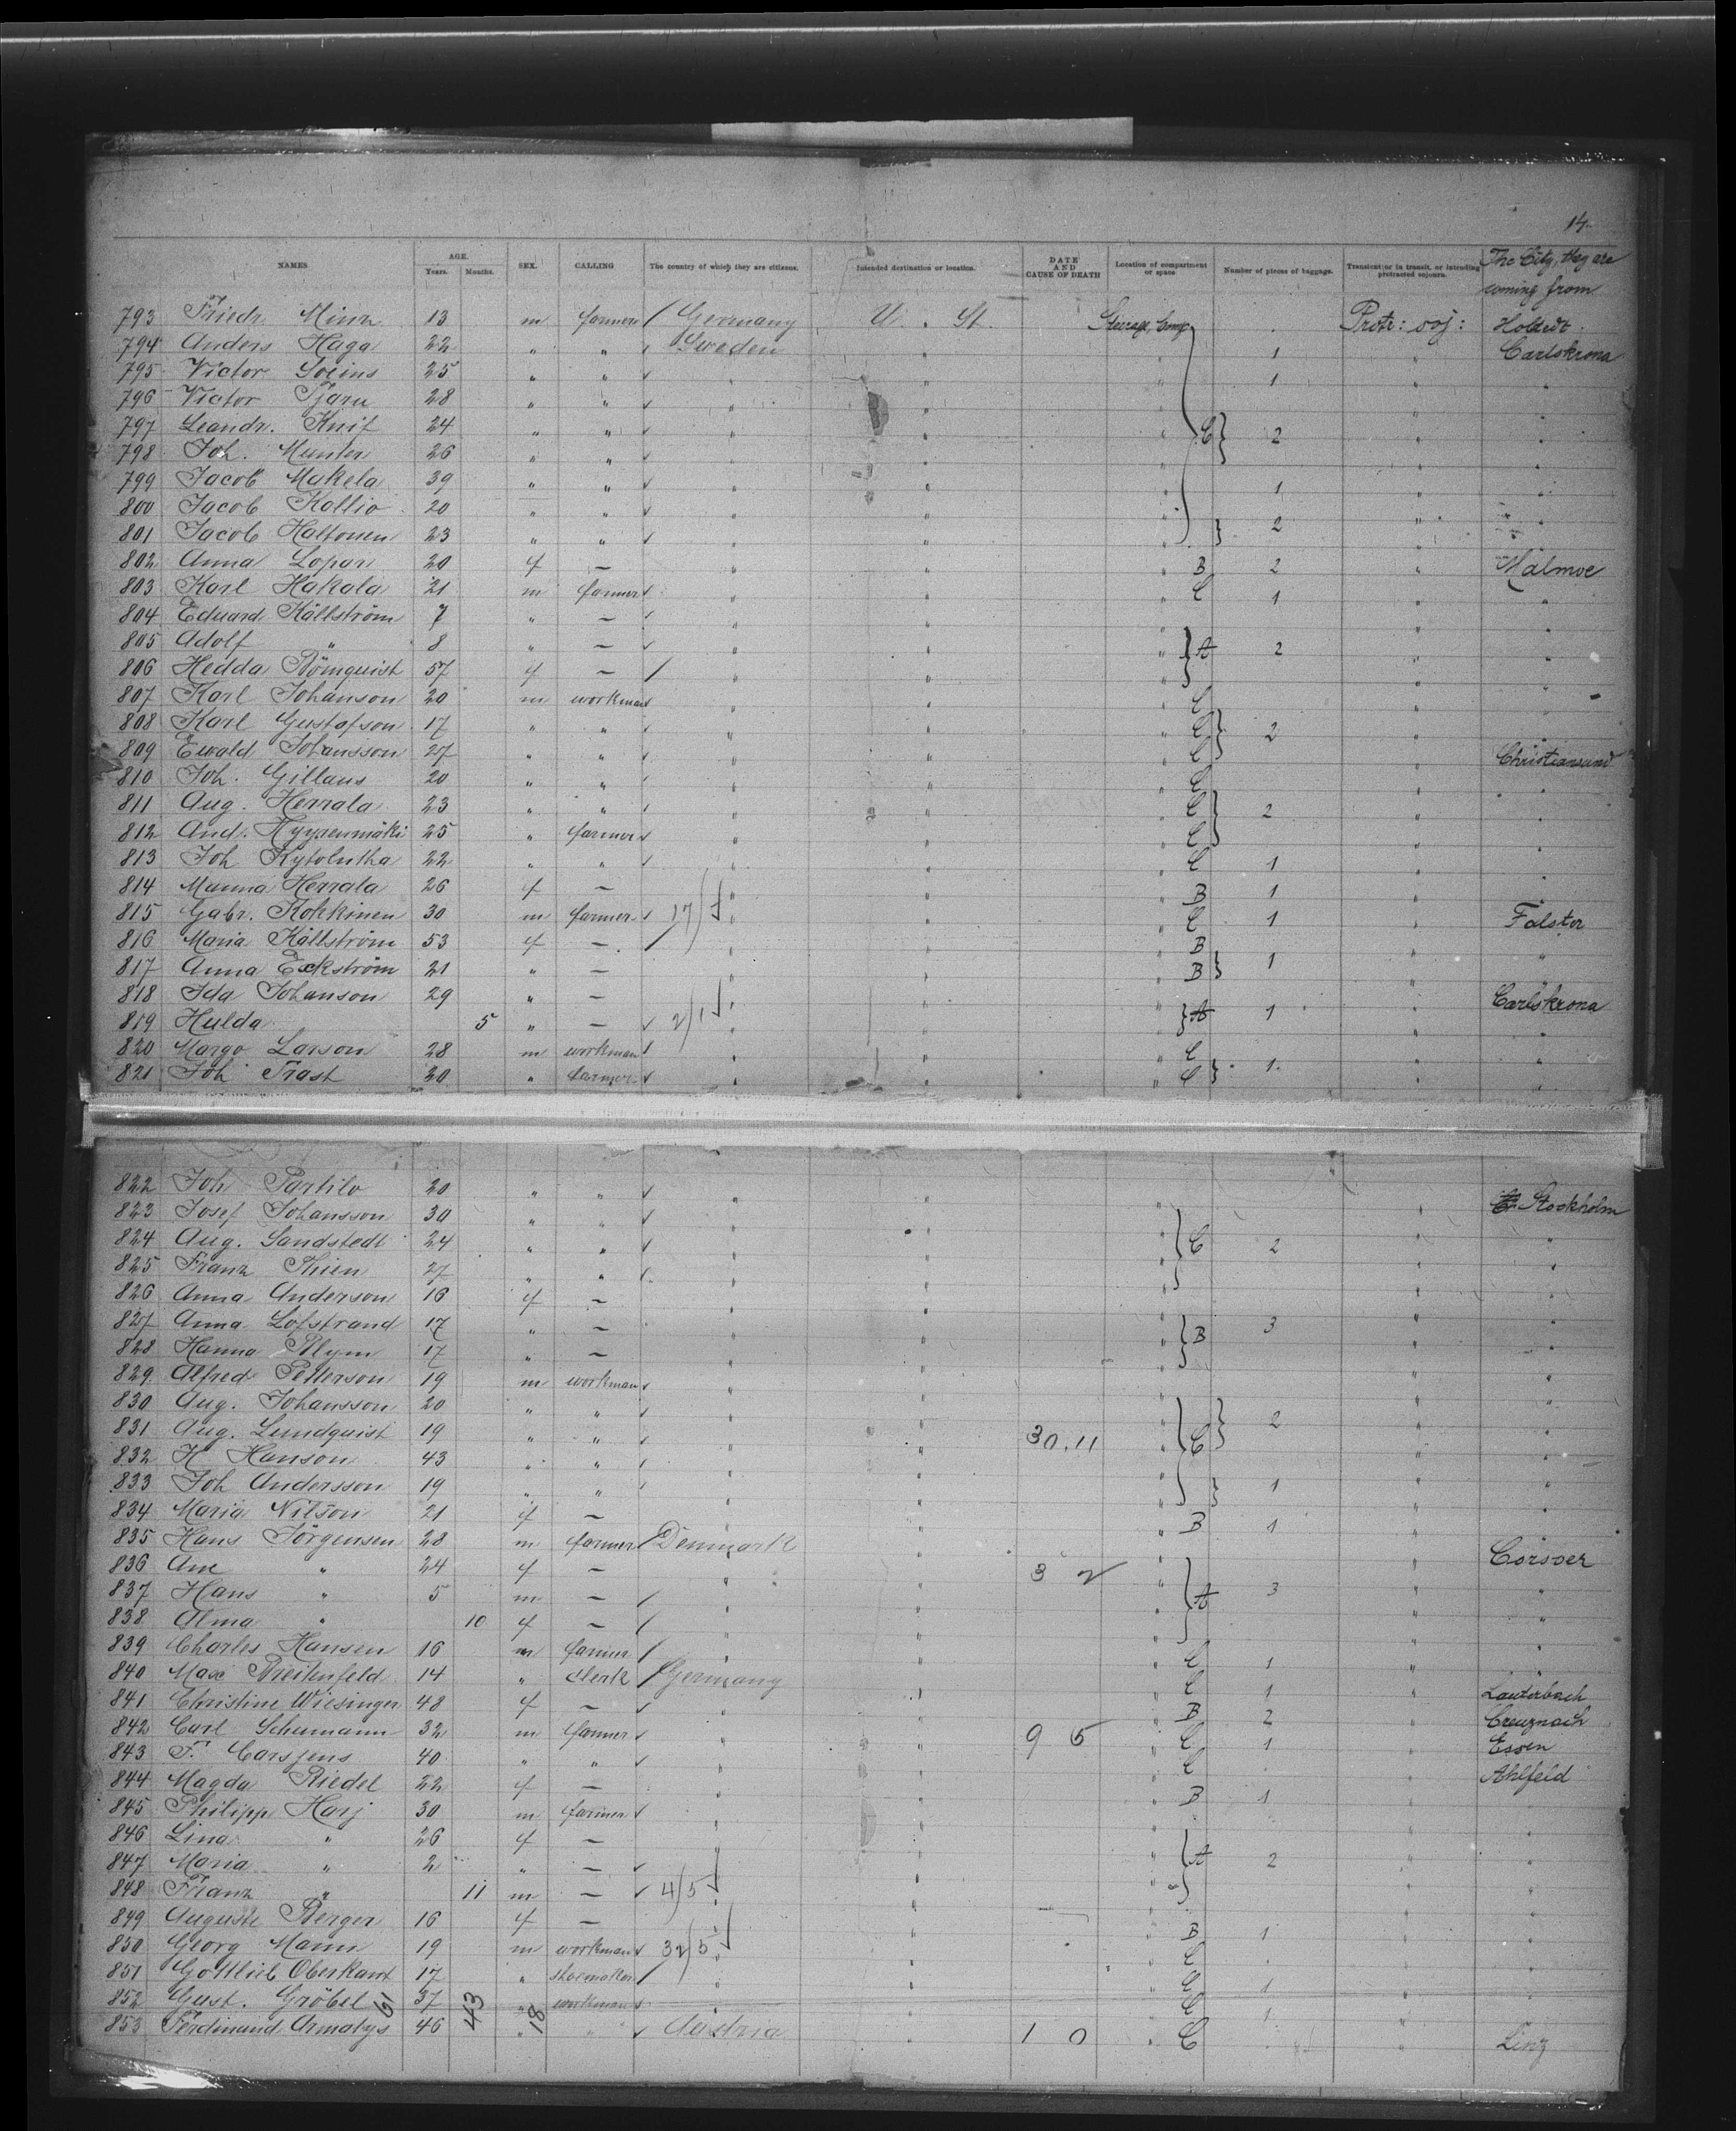 14
NAMES AGE. Years. Months. SEX. CALLING The country of which they are citizens. Intended destination or location. DATE AND CAUSE OF DEATH Location of compartment or space Number of pieces of baggage. Transient or in transit, or intending protracted sojourn. The City, they are coming from
793 Friedr. 13 m farmer Germany U. St. Steerage Comp. Protr: soj:
794 Anders Haga 22 " " Sweden " " 1 " Carlskrona
795 Victor 25 " " " " " 1 " "
796 Victor 28 " " " " " " "
797 Leandr. Knif 24 " " " " " C 2 " "
798 Joh. Munter 26 " " " " " " "
799 Jacob Makela 39 " " " " " 1 " "
800 Jacob Kallio 20 " " " " " " "
801 Jacob Haltonen 23 " " " " " 2 " "
802 Anna Lopari 20 f — " " " B 2 " Malmoe
803 Karl Hakala 21 m farmer " " " C 1 " "
804 Eduard Källström 7 " — " " " " "
805 Adolf " 8 " — " " " A 2 " "
806 Hedda 57 f — " " " " "
807 Karl Johanson 20 m workman " " " C " "
808 Karl Gustafson 17 " " " " " C 2 " "
809 Ewald Johansson 27 " " " " " C " Christiansund
810 Joh. Gillaus 20 " " " " " C " "
811 Aug. Herrala 23 " " " " " C 2 " "
812 And. Hyyrenmäki 25 " farmer " " " C " "
813 Joh Kytolutha 22 " " " " " C 1 " "
814 Manna Herrala 26 f — " " " B 1 " "
815 Gabr. Kokkinen 30 m farmer 17 " " " C 1 " Falster
816 Maria Källström 53 f — " " " B " "
817 Anna Eckström 21 " — " " " B 1 " "
818 Ida Johanson 29 " — " " " " Carlskrona
819 Hulda 5 " — 2/1 " " " A 1 " "
820 Margo Larson 28 m workman " " " C " "
821 Joh Trast 30 " farmer " " " C 1 " "
822 Joh Partilo 20 " " " " " " Stockholm
823 Josef Johansson 30 " " " " " " "
824 Aug. Sandstedt 24 " " " " " C 2 " "
825 Franz Thien 27 " " " " " " "
826 Anna Anderson 16 f — " " " " "
827 Anna Lofstrand 17 " — " " " B 3 " "
828 Hanna 17 " — " " " " "
829 Alfred Petterson 19 m workman " " " " "
830 Aug. Johansson 20 " " " " " 2 " "
831 Aug. Lundquist 19 " " " " 30.11 " C " "
832 H Hanson 43 " " " " " " "
833 Joh Andersson 19 " " " " " 1 " "
834 Maria Nilson 21 f — " " " B 1 " "
835 Hans Jörgensen 28 m farmer Denmark " " " Corsoer
836 Ane " 24 f — " " 3 2 " " "
837 Hans " 5 m — " " " A 3 " "
838 Alma " 10 f — " " " " "
839 Charles Hansen 16 m farmer " " " C 1 " "
840 Max Breitenfeld 14 " clerk Germany " " C 1 " Lauterbach
841 Christine Wiesinger 48 f — " " " B 2 " Creuznach
842 Carl Schumann 32 m farmer " " 9 5 " C 1 " Essen
843 F. Carsjens 40 " " " " " C " Ahlfeld
844 Magda Riedel 22 f — " " " B 1 " "
845 Philipp Harj 30 m farmer " " " " "
846 Lina " 26 f — " " " " "
847 Maria " 2 " — " " " A 2 " "
848 Franz " 11 m — 4/5 " " " " "
849 Auguste Berger 16 f — " " " B 1 " "
850 Georg Mann 19 m workman 32/5 " " " C " "
851 Gottlieb Oberkant 17 " shoemaker " " " C 1 " "
852 Gust. Gröbel 61 37 43 " 18 workman " " " C 1 " "
853 Ferdinand Armatys 46 " " Austria " 1 0 " C " Linz